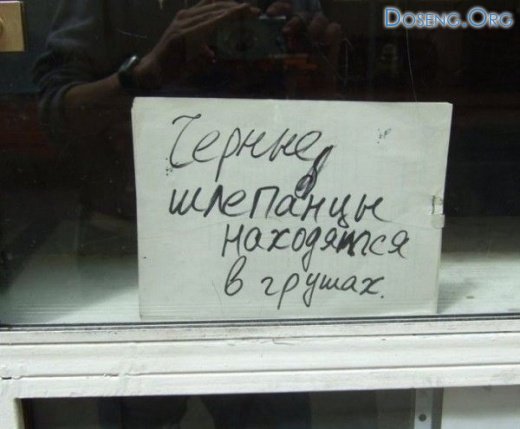 Doseng.Org
Черные
шлепанцы
находятся
в грушах.